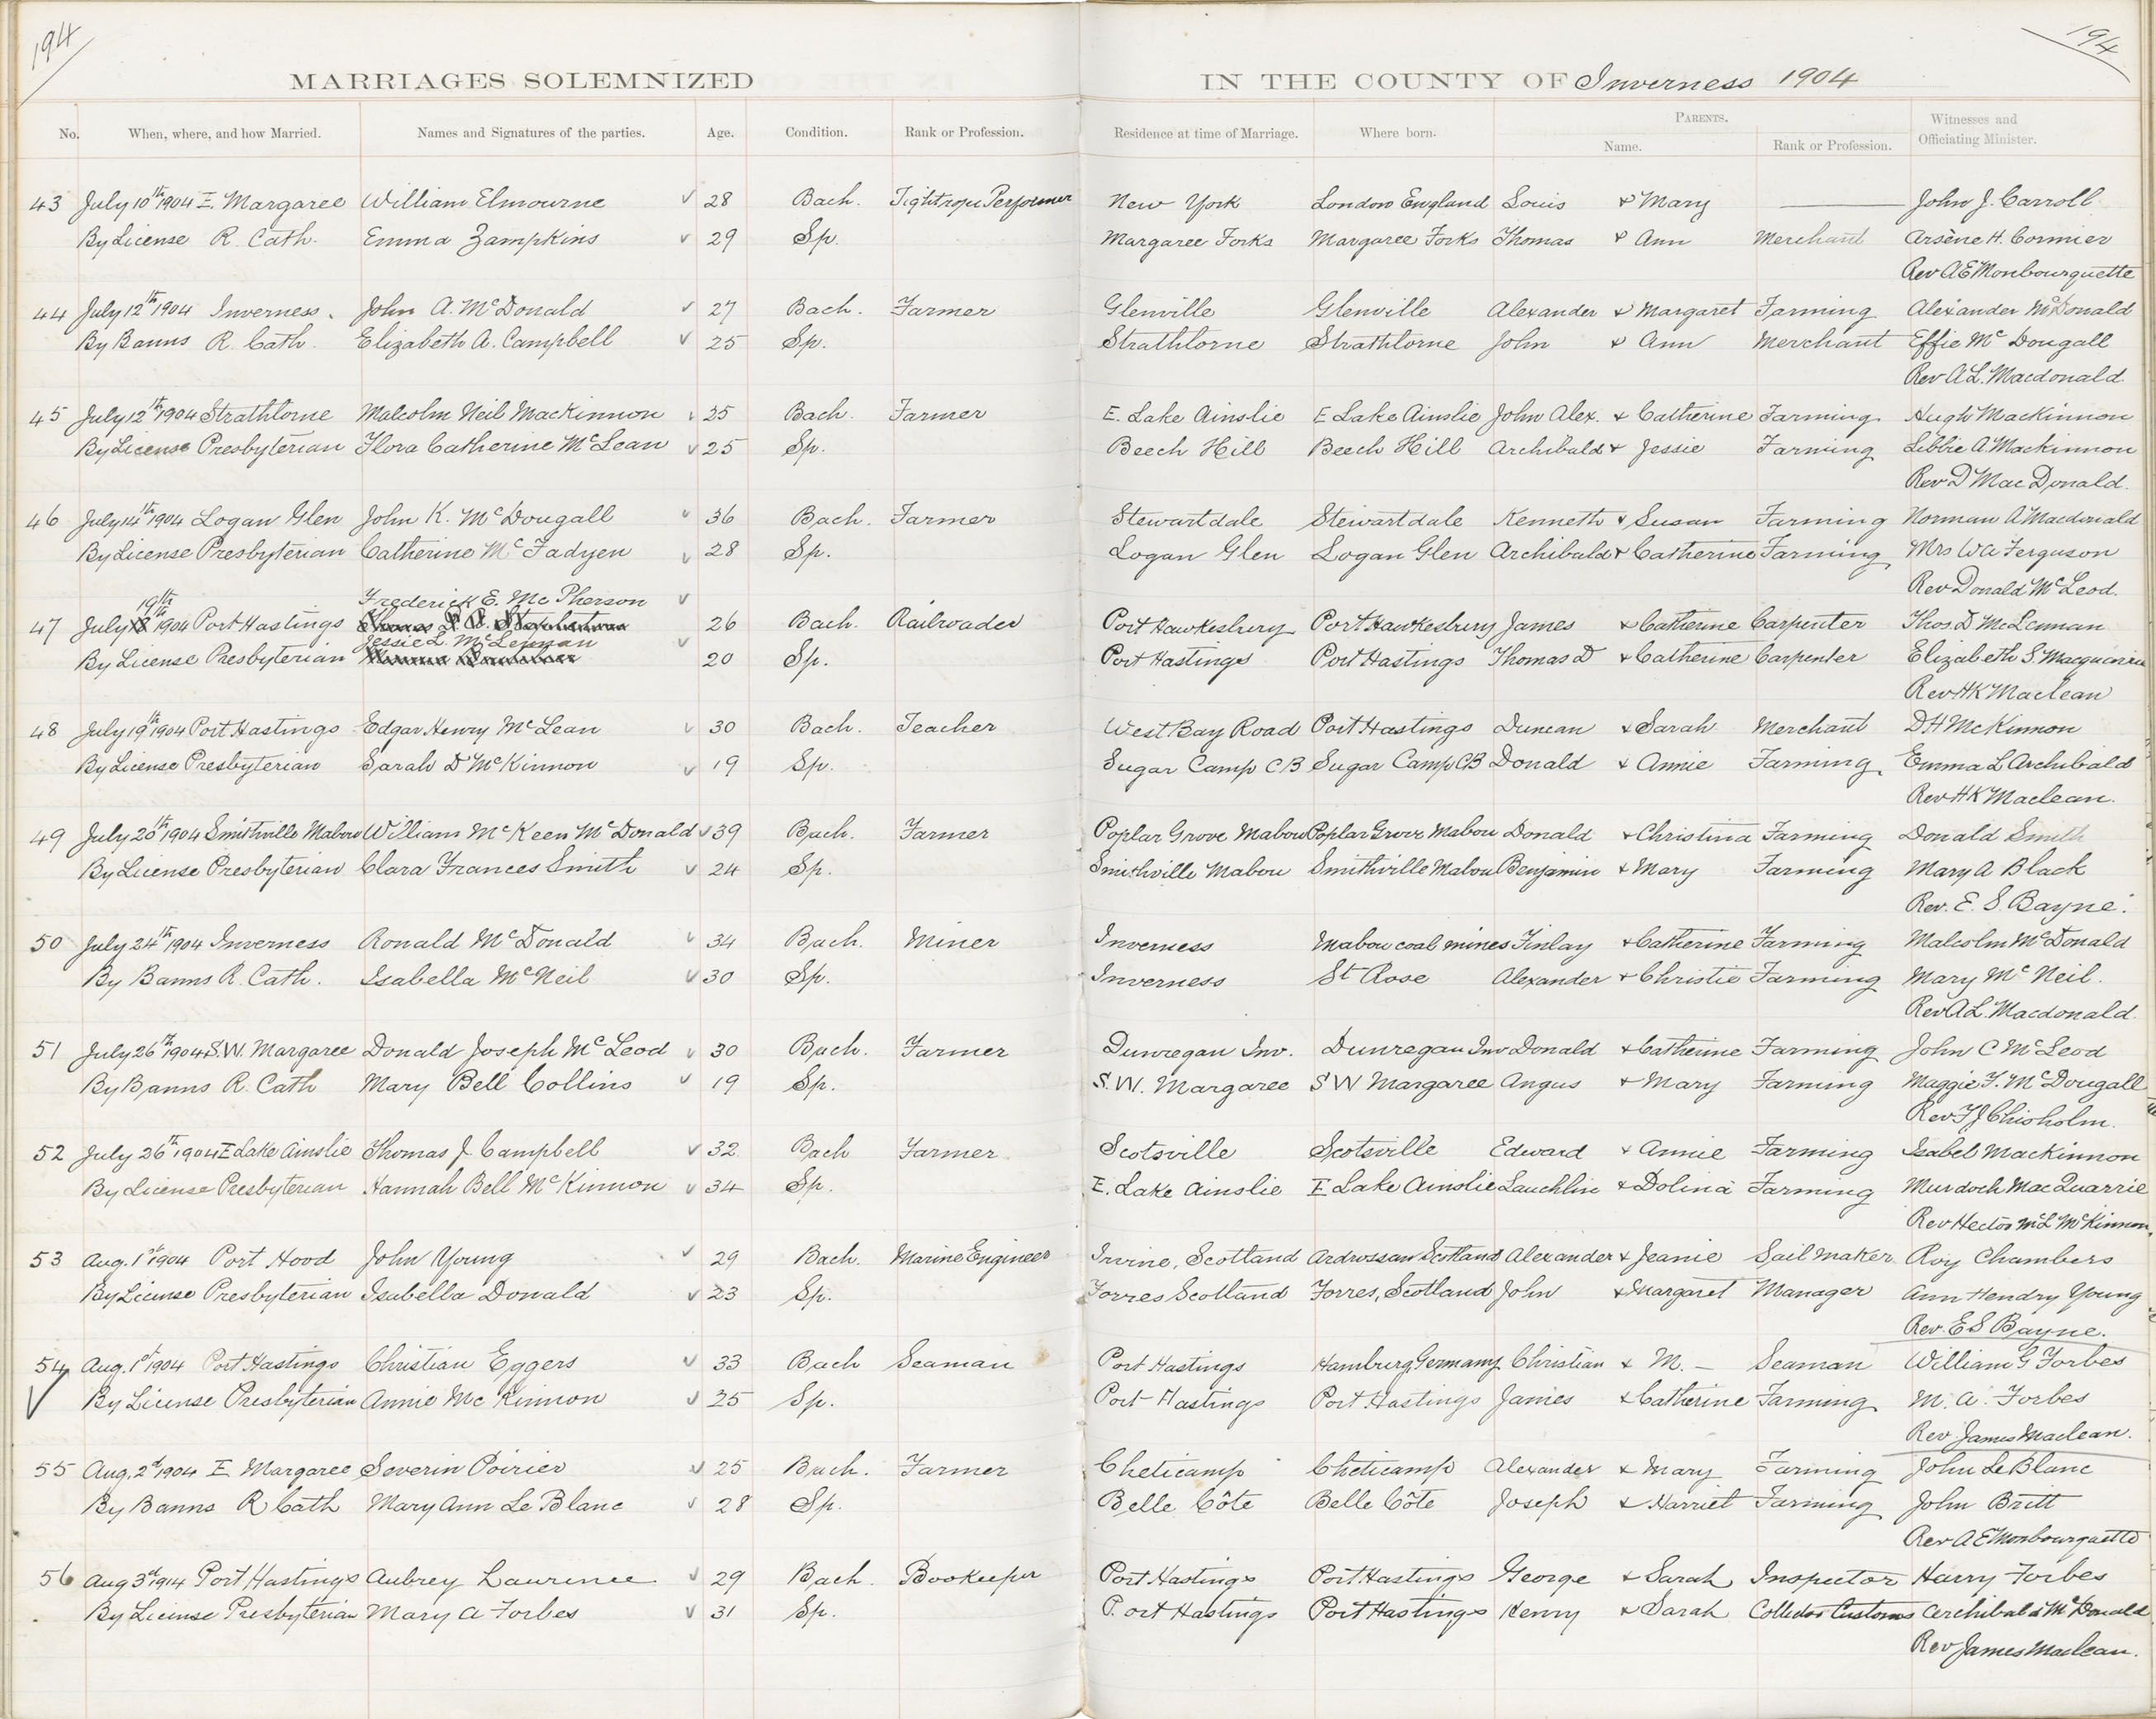 194
194
MARRIAGES SOLEMNIZED IN THE COUNTY OF Inverness 1904
No. When, where, and how Married. Names and Signatures of the parties. Age. Condition. Rank or Profession. Residence at time of Marriage. Where born. PARENTS. Name. Rank or Profession. Witnesses and Officiating Minister.
43 July 10th 1904 E. Margaree William Elmourne 28 Bach. Tightrope Performer New York London England Louis & Mary — John J. Carroll
By License R. Cath. Emma Zampkins 29 Sp. Margaree Forks Margaree Forks Thomas & Ann Merchant Arsène H. Cormier
Rev A E Monbourquette
44 July 12th 1904 Inverness. John A. McDonald 27 Bach. Farmer Glenville Glenville Alexander & Margaret Farming Alexander McDonald
By Banns R. Cath. Elizabeth A. Campbell 25 Sp. Strathlorne Strathlorne John & Ann Merchant Effie McDougall
Rev A L. Macdonald.
45 July 12th 1904 Strathlorne Malcolm Neil MacKinnon 25 Bach. Farmer E. Lake Ainslie E Lake Ainslie John Alex. & Catherine Farming Hugh MacKinnon
By License Presbyterian Flora Catherine McLean 25 Sp. Beech Hill Beech Hill Archibald & Jessie Farming Libbie A. Mackinnon
Rev D MacDonald.
46 July 14th 1904 Logan Glen John K. McDougall 36 Bach. Farmer Stewartdale Stewartdale Kenneth & Susan Farming Norman A Macdonald
By License Presbyterian Catherine McFadyen 28 Sp. Logan Glen Logan Glen Archibald & Catherine Farming Mrs W A Ferguson
Rev Donald McLeod.
19th Frederick E. McPherson
47 July 1904 Port Hastings 26 Bach. Railroader Port Hawkesbury Port Hawkesbury James & Catherine Carpenter Thos. D McLennan
Jessie L. McLennan
By License Presbyterian 20 Sp. Port Hastings Port Hastings Thomas D & Catherine Carpenter Elizabeth S. Macquarrie
Rev H K Maclean
48 July 19th 1904 Port Hastings Edgar Henry McLean 30 Bach. Teacher West Bay Road Port Hastings Duncan & Sarah Merchant D H McKinnon
By License Presbyterian Sarah D McKinnon 19 Sp. Sugar Camp C B Sugar Camp CB Donald & Annie Farming Emma L Archibald
Rev H K Maclean.
49 July 20th 1904 Smithville Mabou William McKeen McDonald 39 Bach. Farmer Poplar Grove Mabou Poplar Grove Mabou Donald & Christina Farming Donald Smith
By License Presbyterian Clara Frances Smith 24 Sp. Smithville Mabou Smithville Mabou Benjamin & Mary Farming Mary A Black
Rev. E. S. Bayne.
50 July 24th 1904 Inverness Ronald McDonald 34 Bach. Miner Inverness Mabou coal mines Finlay & Catherine Farming Malcolm McDonald
By Banns R. Cath. Isabella McNeil 30 Sp. Inverness St Rose Alexander & Christie Farming Mary McNeil.
Rev A L. Macdonald.
51 July 26th 1904 S.W. Margaree Donald Joseph McLeod 30 Bach. Farmer Dunvegan Inv. Dunvegan Inv Donald & Catherine Farming John C McLeod
By Banns R. Cath Mary Bell Collins 19 Sp. S.W. Margaree S W Margaree Angus & Mary Farming Maggie F. McDougall
Rev F J Chisholm.
52 July 26th 1904 E Lake Ainslie Thomas J. Campbell 32 Bach Farmer Scotsville Scotsville Edward & Annie Farming Isabel Mackinnon
By License Presbyterian Hannah Bell McKinnon 34 Sp. E. Lake Ainslie E Lake Ainslie Lauchlin & Dolina Farming Murdoch MacQuarrie
Rev Hector McL McKinnon.
53 Aug. 1st 1904 Port Hood John Young 29 Bach. Marine Engineer Irvine, Scotland Ardrossan Scotland Alexander & Jeanie Sail maker Roy Chambers
By License Presbyterian Isabella Donald 23 Sp. Forres Scotland Forres, Scotland John & Margaret Manager Ann Hendry Young
Rev. E S Bayne.
54 Aug. 1st 1904 Port Hastings Christian Eggers 33 Bach Seaman Port Hastings Hamburg, Germany Christian & M. — Seaman William G Forbes
By License Presbyterian Annie McKinnon 25 Sp. Port Hastings Port Hastings James & Catherine Farming M. A. Forbes
Rev James Maclean.
55 Aug. 2d 1904 E Margaree Severin Poirier 25 Bach. Farmer Cheticamp Cheticamp Alexander & Mary Farming John LeBlanc
By Banns R Cath Mary Ann LeBlanc 28 Sp. Belle Côte Belle Côte Joseph & Harriet Farming John Britt
Rev A E Monbourquette
56 Aug 3d 1914 Port Hastings Aubrey Laurence 29 Bach. Bookeeper Port Hastings Port Hastings George & Sarah Inspector Harry Forbes
By License Presbyterian Mary A Forbes 31 Sp. Port Hastings Port Hastings Henry & Sarah Collector Customs Archibald McDonald
Rev James Maclean.